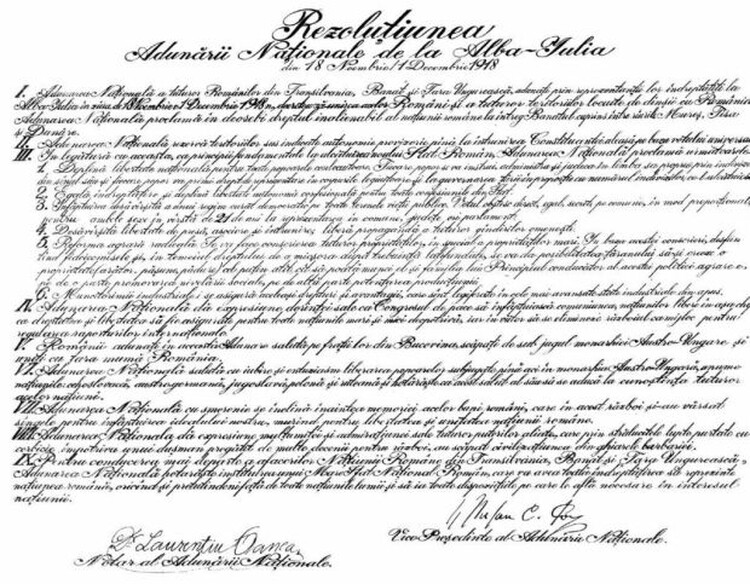 Rezoluțiunea
Adunării Naționale de la Alba-Iulia
din 18 Noembrie/1 Decembrie 1918
I. Adunarea Națională a tuturor Românilor din Transilvania, Banat și Țara Ungurească, adunați prin reprezentanții lor îndreptățiți la
Alba-Iulia în ziua de 18 Noembrie/1 Decembrie 1918, decretează unirea acelor Români și a tuturor teritoriilor locuite de dînșii cu România.
Adunarea Națională proclamă în deosebi dreptul inalienabil al națiunii române la întreg Banatul cuprins între rîurile Mureș, Tisa
și Dunăre.
II. Adunarea Națională rezervă teritoriilor sus indicate autonomie provizorie pînă la întrunirea Constituantei aleasă pe baza votului universal.
III. În legătură cu aceasta, ca principii fundamentale la alcătuirea noului Stat Român, Adunarea Națională proclamă următoarele:
1. Deplină libertate națională pentru toate popoarele conlocuitoare. Fiecare popor se va instrui, administra și judeca în limba sa proprie prin indivizi
din sînul său și fiecare popor va primi drept de reprezentare în corpurile legiuitoare și la guvernarea țării în proporție cu numărul indivizilor ce-l alcătuiesc.
2. Egală îndreptățire și deplină libertate autonomă confesională pentru toate confesiunile din Stat.
3. Înfăptuirea desăvîrșită a unui regim curat democratic pe toate terenele vieții publice. Votul obștesc, direct, egal, secret, pe comune, în mod proporțional,
pentru ambele sexe, în vîrstă de 21 de ani la reprezentarea în comune, județe ori parlament.
4. Desăvîrșită libertate de presă, asociere și întrunire; liberă propagandă a tuturor gîndurilor omenești.
5. Reforma agrară radicală. Se va face conscrierea tuturor proprietăților, în special a proprietăților mari. În baza acestei conscrieri, desființînd
fideicomisele și, în temeiul dreptului de a micșora după trebuință latifundiile, se va da posibilitatea țăranului să-și creeze o
proprietate (arător, pășune, pădure) al puțin atît cît să poată munci el și familia lui. Principiul conducător al acestei politici agrare e
pe de o parte promovarea nivelării sociale, pe de altă parte potențarea producțiunii.
6. Muncitorimei industriale i se asigură aceleași drepturi și avantagii, care sînt legiferate în cele mai avansate state industriale din apus.
IV. Adunarea Națională dă expresiune dorinței sale ca Congresul de pace să înfăptuiască comuniunea națiunilor libere în așa chip
ca dreptatea și libertatea să fie asigurate pentru toate națiunile mari și mici deopotrivă, iar în viitor să se elimineze războiul ca mijloc pentru
regularea raporturilor internaționale.
V. Românii adunați în această Adunare salută pe frații lor din Bucovina, scăpați de sub jugul monarhiei Austro-Ungare și
uniți cu țara mumă România.
VI. Adunarea Națională salută cu iubire și entuziasm liberarea popoarelor subjugate pînă aci în monarhia Austro-Ungară, anume
națiunile: cehoslovacă, austrogermană, jugoslavă, polonă și ruteană și hotărăște ca acest salut al său să se aducă la cunoștința tuturor
acelor națiuni.
VII. Adunarea Națională cu smerenie se înclină înaintea memoriei acelor bravi români, care în acest război și-au vărsat
sîngele pentru înfăptuirea idealului nostru, murind pentru libertatea și unitatea națiunii române.
VIII. Adunarea Națională dă expresiune mulțumitei și admirațiunei sale tuturor puterilor aliate, care prin strălucitele lupte purtate cu
cerbicie împotriva unui dușman pregătit de multe decenii pentru război, au scăpat civilizațiunea din ghiarele barbariei.
IX. Pentru conducerea mai departe a afacerilor Națiunii Române din Transilvania, Banat și Țara Ungurească,
Adunarea Națională hotărăște instituirea unui Mare Sfat Național Român, care va avea toată îndreptățirea să reprezinte
națiunea română, oricînd și pretutindeni față de toate națiunile lumii și să ia toate dispozițiile pe care le află necesare în interesul
națiunii.
Dr. Laurențiu Oanea
Notar al Adunării Naționale.
Ștefan C. Pop
Vice-Președinte al Adunării Naționale.